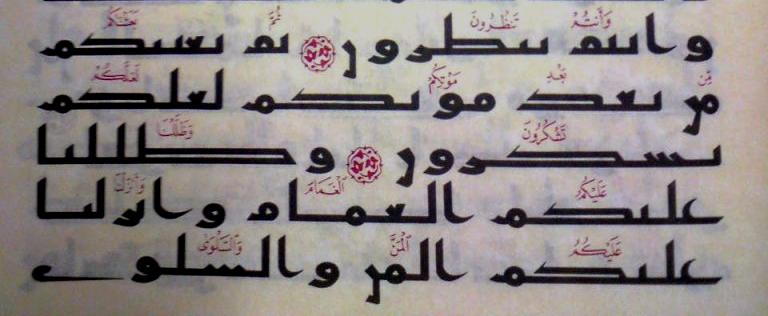 وَأَنتُمْ تَنظُرُونَ ثُمَّ بَعَثْنَٰكُم
وانتم تنظرور ثم بعثنكم
مِّنۢ بَعْدِ مَوْتِكُمْ لَعَلَّكُمْ
مر بعد موتكم لعلكم
تَشْكُرُونَ وَظَلَّلْنَا
تشكرور وظللنا
عَلَيْكُمُ ٱلْغَمَامَ وَأَنزَلْنَا
عليكم الغمام وانزلنا
عَلَيْكُمُ ٱلْمَنَّ وَٱلسَّلْوَىٰ
عليكم المر والسلوى